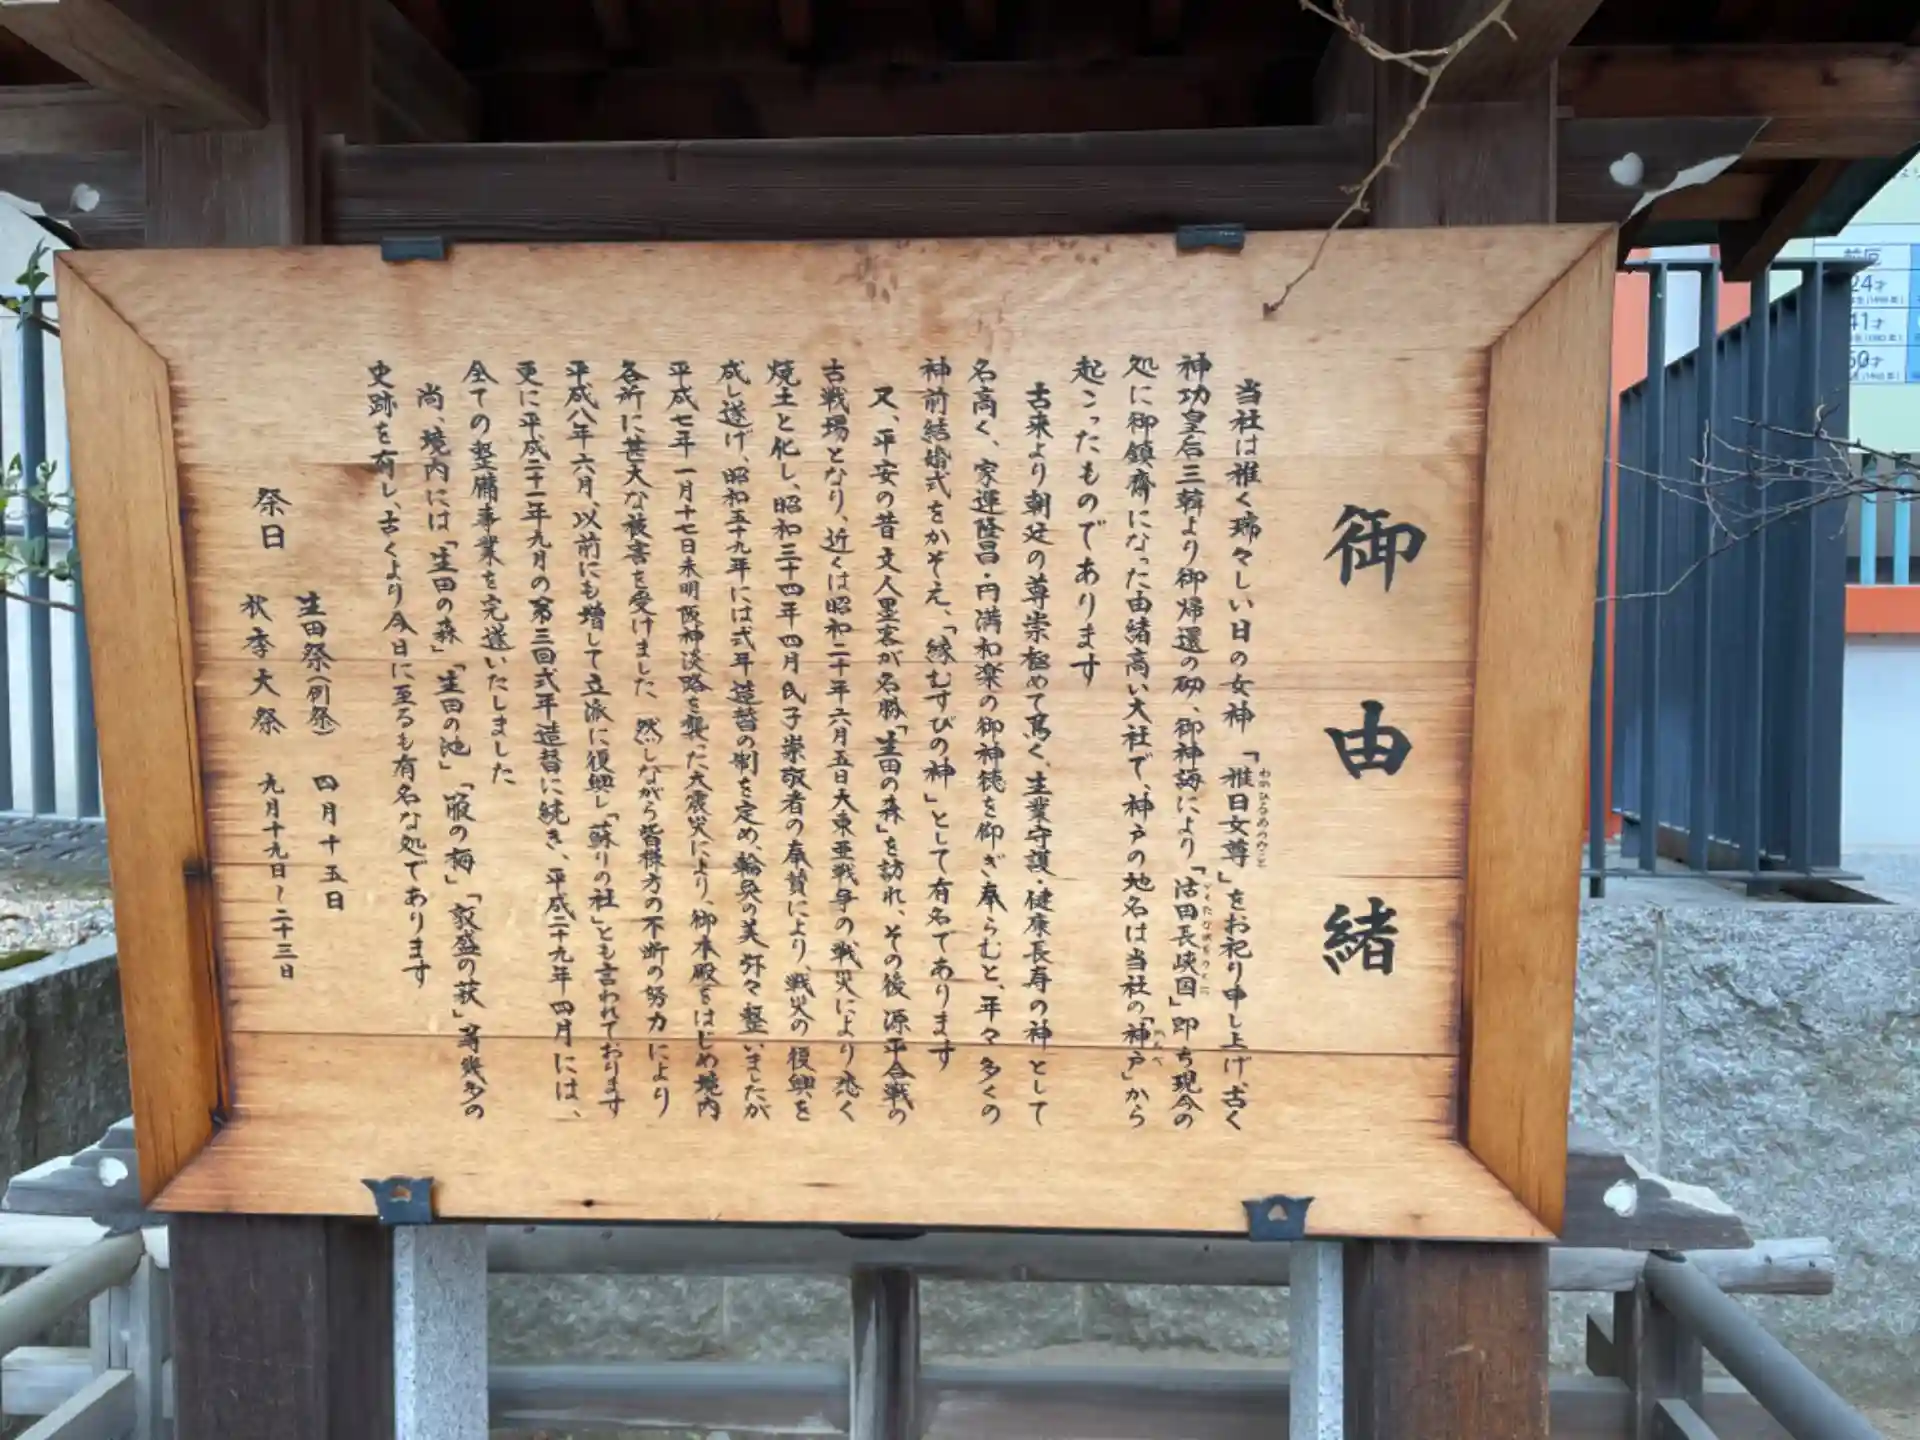 御由緒
当社は稚く瑞々しい日の女神「稚日女尊」をお祀り申し上げ、古く
わかひるめのみこと
神功皇后三韓より御帰還の砌、御神誨により「活田長峡国」即ち現今の
いくたながおのくに
処に御鎮斎になった由緒高い大社で、神戸の地名は当社の「神戸」から
かんべ
起こったものであります
古来より朝廷の尊崇極めて篤く、生業守護・健康長寿の神として
名高く、家運隆昌・円満和楽の御神徳を仰ぎ奉らむと、年々多くの
神前結婚式をかぞえ、「縁むすびの神」として有名であります
又、平安の昔文人墨客が名勝「生田の森」を訪れ、その後源平合戦の
古戦場となり、近くは昭和二十年六月五日大東亜戦争の戦災により悉く
焼土と化し、昭和三十四年四月氏子崇敬者の奉賛により、戦災の復興を
成し遂げ、昭和五十九年には式年造替の制を定め、輪奐の美弥々整いましたが
平成七年一月十七日未明阪神淡路を襲った大震災により、御本殿をはじめ境内
各所に甚大な被害を受けました 然しながら皆様方の不断の努力により
平成八年六月、以前にも増して立派に復興し「蘇りの社」とも言われております
更に平成二十一年九月の第三回式年造替に続き、平成二十九年四月には、
全ての整備事業を完遂いたしました
尚、境内には「生田の森」「生田の池」「箙の梅」「敦盛の萩」等幾多の
史跡を有し、古くより今日に至るも有名な処であります
祭日 生田祭(例祭) 四月十五日
秋季大祭 九月十九日〜二十三日
前厄
24才
41才
60才